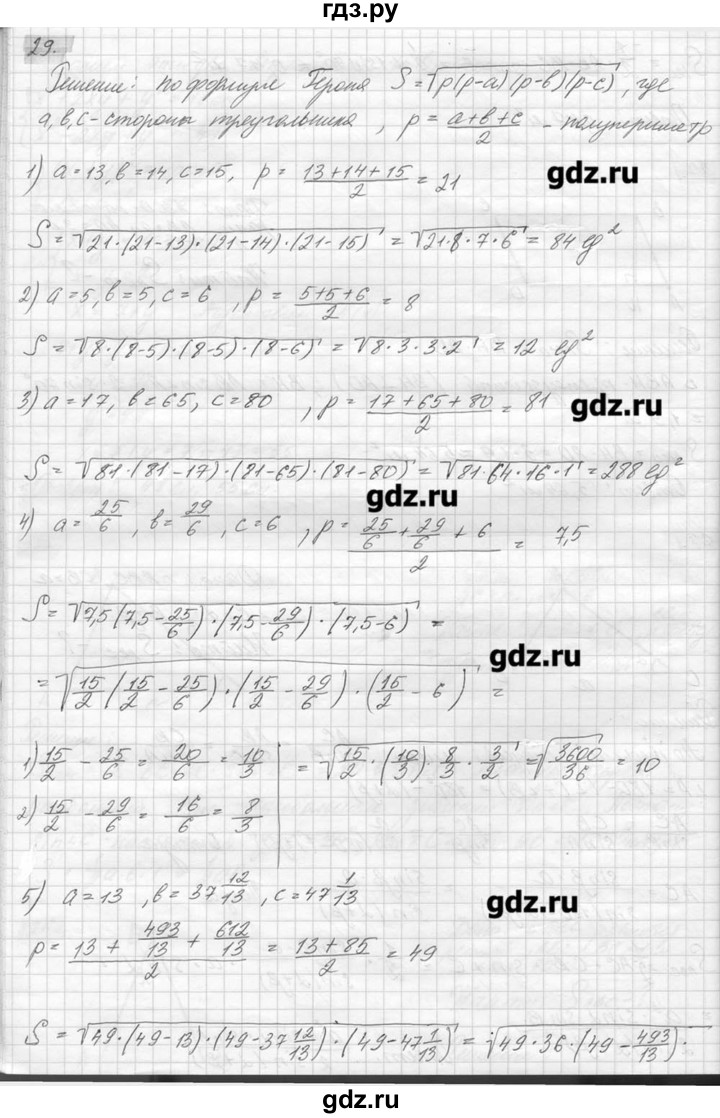 гдз.ру
29.
Решение: по формуле Герона S = √(p(p-a)(p-в)(p-c)), где
a,в,c - стороны треугольника, p = (a+в+c)/2 - полупериметр
1) a=13, в=14, c=15, p = (13+14+15)/2 = 21
gdz.ru
S = √(21·(21-13)·(21-14)·(21-15)) = √(21·8·7·6) = 84 ед²
2) a=5, в=5, c=6, p = (5+5+6)/2 = 8
S = √(8·(8-5)·(8-5)·(8-6)) = √(8·3·3·2) = 12 ед²
3) a=17, в=65, c=80, p = (17+65+80)/2 = 81
gdz.ru
S = √(81·(81-17)·(81-65)·(81-80)) = √(81·64·16·1) = 288 ед²
gdz.ru
4) a = 25/6, в = 29/6, c=6, p = (25/6 + 29/6 + 6)/2 = 7,5
S = √(7,5(7,5 - 25/6)·(7,5 - 29/6)·(7,5-6)) =
gdz.ru
= √(15/2 (15/2 - 25/6)·(15/2 - 29/6)·(15/2 - 6)) =
1) 15/2 - 25/6 = 20/6 = 10/3 | = √(15/2·(10/3)·8/3·3/2) = √(3600/36) = 10
2) 15/2 - 29/6 = 16/6 = 8/3
5) a=13, в=37 12/13, c=47 1/13
gdz.ru
p = (13 + 493/13 + 612/13)/2 = (13+85)/2 = 49
S = √(49·(49-13)·(49-37 12/13)·(49-47 1/13)) = √(49·36·(49 - 493/13)·